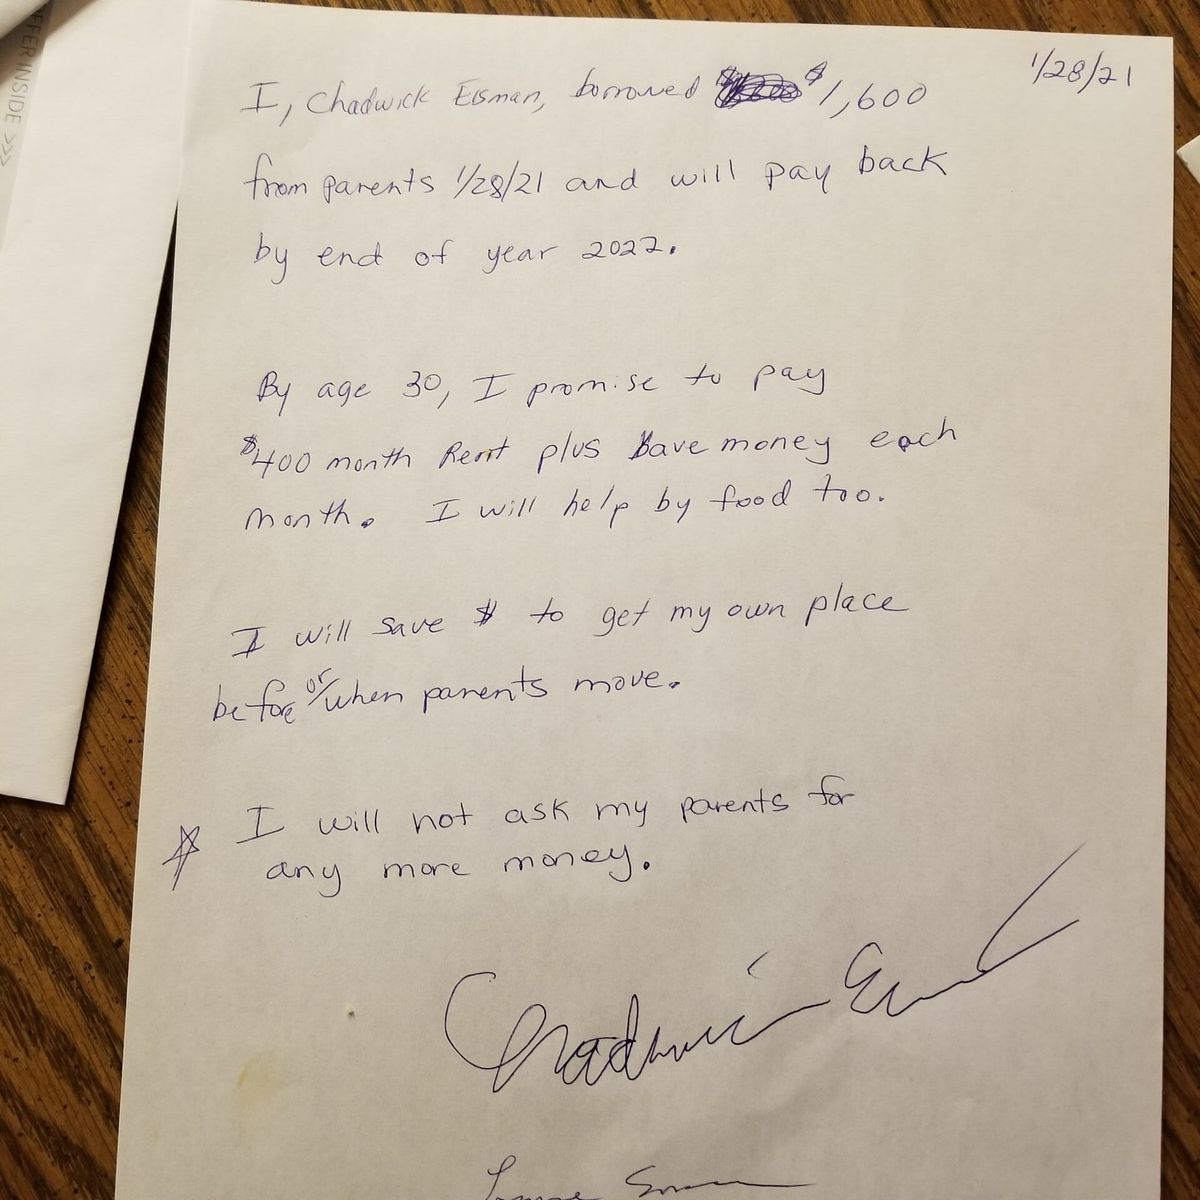 FFER INSIDE >>>
1/28/21
I, Chadwick Eisman, borrowed $1,600
from parents 1/28/21 and will pay back
by end of year 2022.
By age 30, I promise to pay
$400 month Rent plus have money each
month. I will help by food too.
I will save $ to get my own place
before or/when parents move.
I will not ask my parents for
any more money.
Chadwick